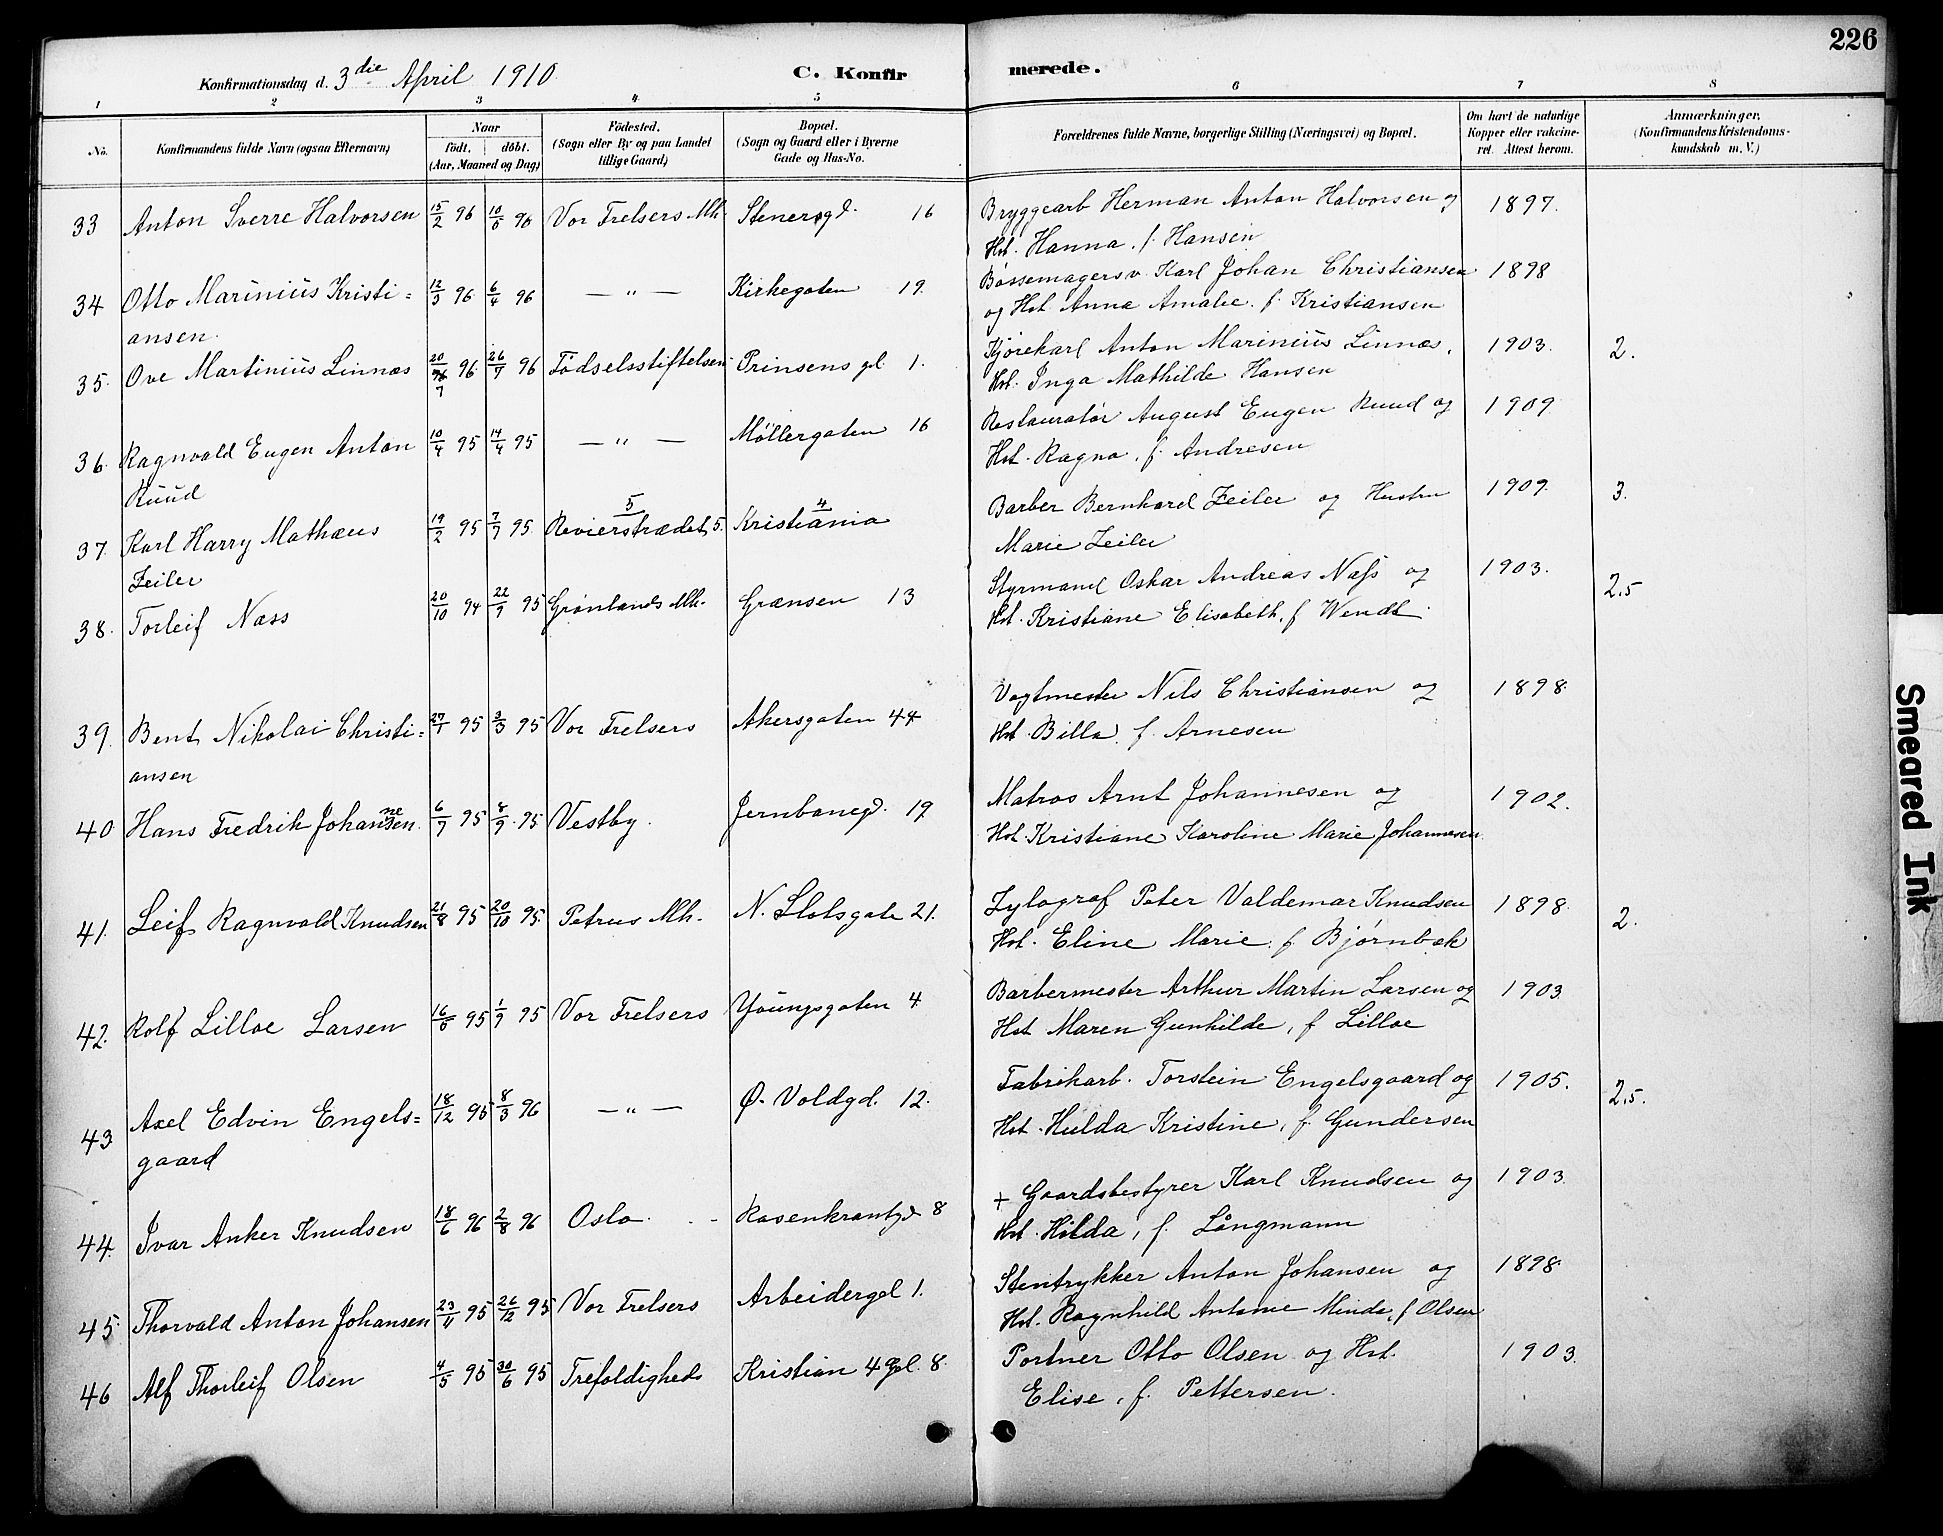 226
Konfirmationsdag d. 3die April 1910
C. Konfirmerede.
1 2 3 4 5 6 7 8
No.
Konfirmandens fulde Navn (ogsaa Efternavn)
Naar
født. døbt.
(Aar, Maaned og Dag)
Fødested.
(Sogn eller By og paa Landet tillige Gaard)
Bopæl.
(Sogn og Gaard eller i Byerne Gade og Hus-No.
Forældrenes fulde Navne, borgerlige Stilling (Næringsvei) og Bopæl.
Om havt de naturlige Kopper eller vakcineret. Attest herom.
Anmærkninger.
(Konfirmandens Kristendomskundskab m. V.)
33 Anton Sverre Halvorsen 15/2 96 10/5 96 Vor Frelsers Mh. Stenersgd. 16 Bryggearb Herman Anton Halvorsen og 1897.
Hst. Hanna, f. Hansen
34 Otto Marinius Kristi= 12/3 96 6/4 96 — " — Kirkegaten 19. Bøssemagersv. Karl Johan Christiansen 1898
ansen. og Hst. Anna Amalie. f. Kristiansen
35. Ove Martinius Linnæs 20/7 96 26/7 96 Fødselsstiftelsen Prinsens gd. 1. Kjørekarl Anton Marinius Linnæs, 1903. 2.
Hst. Inga Mathilde Hansen
36. Ragnvald Eugen Anton 10/4 95 14/4 95 — " — Møllergaten 16 Restauratør August Eugen Ruud og 1909
Ruud Hst. Ragna, f. Andresen
37. Karl Harry Mathæus 19/2 95 7/7 95 5 Revierstrædet 5. 4 Kristiania Barber Bernhard Zeiler og Hustru 1909. 3.
Zeiler Marie Zeiler
38. Torleif Næss 20/10 94 22/9 95 Grønlands Mh. Grænsen 13 Styrmand Oskar Andreas Næss og 1903. 2.5
Hst. Kristiane Elisabeth, f Wendt.
39. Bent Nikolai Christi= 27/1 95 3/3 95 Vor Frelsers Akersgaten 44 Vagtmester Nils Christiansen og 1898.
ansen Hst. Billa, f. Arnesen
40 Hans Fredrik Johannesen 6/7 95 8/9 95 Vestby. Jernbanegd. 19 Matros Arnt Johannesen og 1902.
Hst. Kristiane Karoline Marie Johannesen
41. Leif Ragnvald Knudsen 21/8 95 20/10 95. Petrus Mh. N. Slotsgate 21. Xylograf Peter Valdemar Knudsen 1898. 2.
Hst. Eline Marie. f Bjørnbæk
42. Rolf Lilloe Larsen 16/5 95 1/9 95 Vor Frelsers Youngsgaten 4. Barbermester Arthur Martin Larsen og 1903
Hst Maren Gunhilde, f Lilloe
43 Axel Edvin Engels= 18/12 95 8/3 96 — " — Ø. Voldgd. 12. Fabrikarb. Torstein Engelsgaard og 1905. 2.5.
gaard Hst. Hulda Kristine, f. Gundersen
44. Ivar Anker Knudsen 18/6 96 2/8 96 Oslo. Rosenkrantzgd 8 + Gaardsbestyrer Karl Knudsen og 1903
Hst. Hilda, f. Långmann
45. Thorvald Anton Johansen 23/11 95 26/12 95 Vor Frelsers Arbeidergd 1. Stentrykker Anton Johansen og 1898.
Hst. Ragnhild Antonie Minda, f Olsen
46 Alf Thorleif Olsen 4/5 95 30/6 95 Trefoldigheds Kristian 4 gd. 8. Portner Otto Olsen og Hst. 1903.
Elise, f. Pettersen.
Smeared Ink